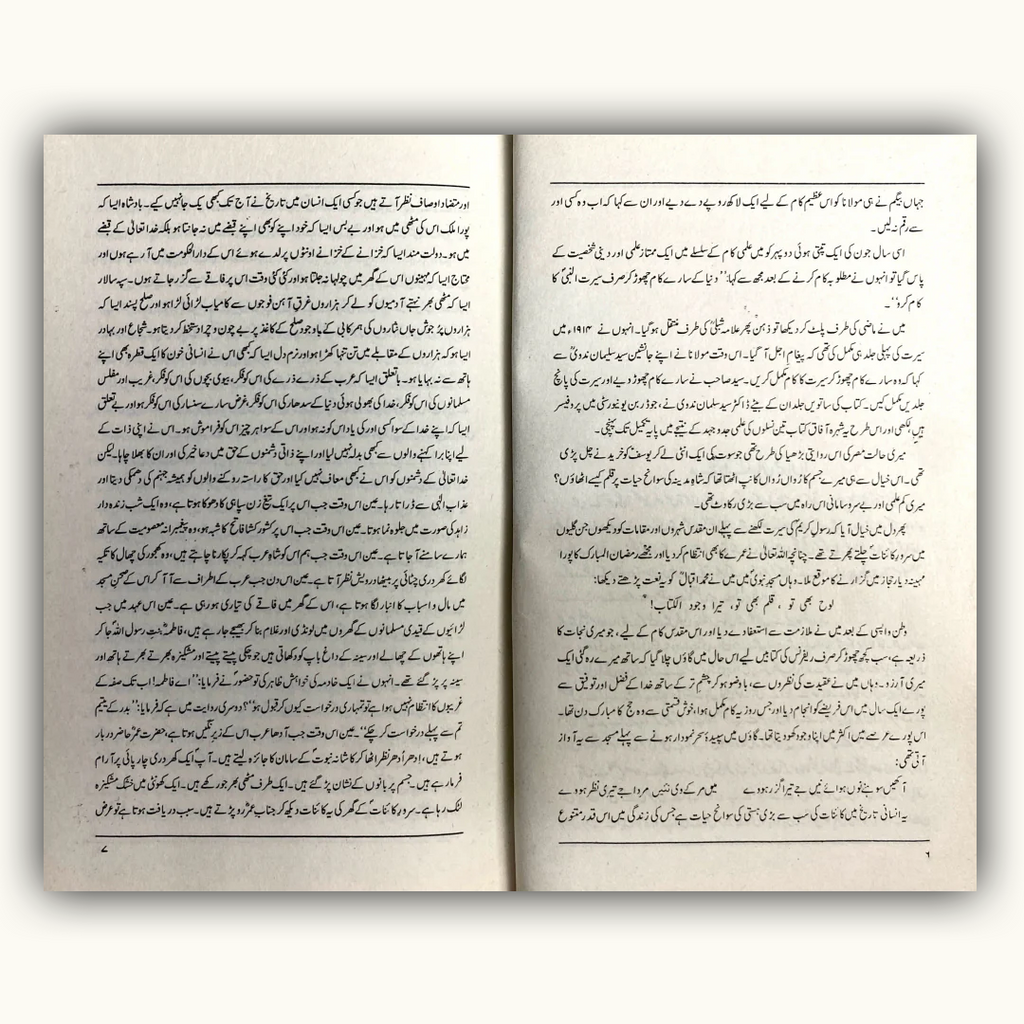 جہاں بیگم نے ہی مولانا کو اس عظیم کام کے لیے ایک لاکھ روپے دے دیے اور ان سے کہا کہ اب وہ کسی اور
سے رقم نہ لیں۔
اسی سال جون کی ایک تپتی ہوئی دوپہر کو میں علمی کام کے سلسلے میں ایک ممتاز علمی اور دینی شخصیت کے
پاس گیا تو انہوں نے مطلوبہ کام کرنے کے بعد مجھ سے کہا: ’’دنیا کے سارے کام چھوڑ کر صرف سیرت النبیؐ کا
کام کرو‘‘۔
میں نے ماضی کی طرف پلٹ کر دیکھا تو ذہن پھر علامہ شبلیؒ کی طرف منتقل ہو گیا۔ انہوں نے ۱۹۱۴ء میں
سیرت کی پہلی جلد ہی مکمل کی تھی کہ پیغامِ اجل آ گیا۔ اس وقت مولانا نے اپنے جانشین سید سلیمان ندویؒ سے
کہا کہ وہ سارے کام چھوڑ کر سیرت کا کام مکمل کریں۔ سید صاحب نے سارے کام چھوڑ دیے اور سیرت کی پانچ
جلدیں مکمل کیں۔ کتاب کی ساتویں جلد ان کے بیٹے ڈاکٹر سید سلمان ندوی نے، جو ڈربن یونیورسٹی میں پروفیسر
ہیں لکھی اور اس طرح یہ شہرہ آفاق کتاب تین نسلوں کی علمی جدوجہد کے نتیجے میں پایہ تکمیل تک پہنچی۔
میری حالت مصر کی اس روایتی بڑھیا کی طرح تھی جو سوت کی ایک انٹی لے کر یوسف کو خریدنے چل پڑی
تھی۔ اس خیال سے ہی میرے جسم کا رُواں رُواں کانپ اٹھتا تھا کہ شاہِ مدینہ کی سوانح حیات پر قلم کیسے اٹھاؤں؟
میری کم علمی اور بے سروسامانی اس راہ میں سب سے بڑی رکاوٹ تھی۔
پھر دل میں خیال آیا کہ رسولِ کریم کی سیرت لکھنے سے پہلے ان مقدس شہروں اور مقامات کو دیکھوں جن گلیوں
میں سرورِ کائناتؐ چلتے پھرتے تھے۔ چنانچہ اللہ تعالیٰ نے عمرے کا بھی انتظام کر دیا اور مجھے رمضان المبارک کا پورا
مہینہ دیارِ حجاز میں گزارنے کا موقع ملا۔ وہاں مسجدِ نبویؐ میں میں نے محمد اقبالؒ کو یہ نعت پڑھتے دیکھا:
لوح بھی تو، قلم بھی تو، تیرا وجود الکتاب!
وطن واپسی کے بعد میں نے ملازمت سے استعفا دے دیا اور اس مقدس کام کے لیے، جو میری نجات کا
ذریعہ ہے، سب کچھ چھوڑ کر صرف ریفرنس کی کتابیں لیے اس حال میں گاؤں چلا گیا کہ ساتھ میرے رہ گئی ایک
میری آرزو۔ وہاں میں نے عقیدت کی نظروں سے، باوضو ہو کر چشمِ تر کے ساتھ خدا کے فضل اور توفیق سے
پورے ایک سال میں اس فریضے کو انجام دیا اور جس روز یہ کام مکمل ہوا، خوش قسمتی سے وہ حج کا مبارک دن تھا۔
اس پورے عرصے میں اکثر میں اپنا وجود کھو دیتا تھا۔ گاؤں میں سپیدۂ سحر نمودار ہونے سے پہلے مسجد سے یہ آواز
آتی تھی:
آکھیں سوہنے نوں ہوائے نیں جے تیرا گزر ہو دے میں مر کے وی نئیں مردا جے تیری نظر ہو دے
یہ انسانی تاریخ میں کائنات کی سب سے بڑی ہستی کی سوانح حیات ہے جس کی زندگی میں اس قدر متنوع
۶
اور متضاد اوصاف نظر آتے ہیں جو کسی ایک انسان میں تاریخ نے آج تک کبھی یک جا نہیں کیے۔ بادشاہ ایسا کہ
پورا ملک اس کی مٹھی میں ہو اور بے بس ایسا کہ خود اپنے کو بھی اپنے قبضے میں نہ جانتا ہو بلکہ خدا تعالیٰ کے قبضے
میں ہو۔ دولت مند ایسا کہ خزانے کے خزانے اونٹوں پر لدے ہوئے اس کے دارالحکومت میں آ رہے ہوں اور
محتاج ایسا کہ مہینوں اس کے گھر میں چولہا نہ جلتا ہو اور کئی کئی وقت اس پر فاقے سے گزر جاتے ہوں۔ سپہ سالار
ایسا کہ مٹھی بھر نہتے آدمیوں کو لے کر ہزاروں غرقِ آہن فوجوں سے کامیاب لڑائی لڑا ہو اور صلح پسند ایسا کہ
ہزاروں پُر جوش جاں نثاروں کی ہمرکابی کے باوجود صلح کے کاغذ پر بے چون و چرا دستخط کر دیتا ہو۔ شجاع اور بہادر
ایسا ہو کہ ہزاروں کے مقابلے میں تن تنہا کھڑا ہو اور نرم دل ایسا کہ کبھی اس نے انسانی خون کا ایک قطرہ بھی اپنے
ہاتھ سے نہ بہایا ہو۔ باتعلق ایسا کہ عرب کے ذرے ذرے کی اس کو فکر، بیوی بچوں کی اس کو فکر، غریب اور مفلس
مسلمانوں کی اس کو فکر، خدا کی بھولی ہوئی دنیا کے سدھار کی اس کو فکر، غرض سارے سنسار کی اس کو فکر ہو اور بے تعلق
ایسا کہ اپنے خدا کے سوا کسی اور کی یاد اس کو نہ ہو اور اس کے سوا ہر چیز اس کو فراموش ہو۔ اس نے اپنی ذات کے
لیے اپنا برا کہنے والوں سے کبھی بدلہ نہیں لیا اور اپنے ذاتی دشمنوں کے حق میں دعا خیر کی اور ان کا بھلا چاہا۔ لیکن
خدا تعالیٰ کے دشمنوں کو اس نے کبھی معاف نہیں کیا اور حق کا راستہ روکنے والوں کو ہمیشہ جہنم کی دھمکی دیتا اور
عذابِ الٰہی سے ڈراتا رہا۔ عین اس وقت جب اس پر ایک تیغ زن سپاہی کا دھوکا ہوتا ہے، وہ ایک شب زندہ دار
زاہد کی صورت میں جلوہ نما ہوتا۔ عین اس وقت جب اس پر کشور کشا فاتح کا شبہ ہو، وہ پیغمبرانہ معصومیت کے ساتھ
ہمارے سامنے آ جاتا ہے۔ عین اس وقت جب ہم اس کو شاہِ عرب کہہ کر پکارنا چاہتے ہیں، وہ کھجور کی چھال کا تکیہ
لگائے کھردری چٹائی پر بیٹھا درویش نظر آتا ہے۔ عین اس دن جب عرب کے اطراف سے آ آ کر اس کے صحنِ مسجد
میں مال و اسباب کا انبار لگا ہوتا ہے، اس کے گھر میں فاقے کی تیاری ہو رہی ہے۔ عین اس عہد میں جب
لڑائیوں کے قیدی مسلمانوں کے گھروں میں لونڈی اور غلام بنا کر بھیجے جا رہے ہیں، فاطمہؓ بنتِ رسول اللہؐ جا کر
اپنے ہاتھوں کے چھالے اور سینہ کے داغ باپ کو دکھاتی ہیں جو چکی پیستے پیستے اور مشکیزہ بھرتے بھرتے ہاتھ اور
سینہ پر پڑ گئے تھے۔ انہوں نے ایک خادمہ کی خواہش ظاہر کی تو حضورؐ نے فرمایا: ’’اے فاطمہ! اب تک صفہ کے
غریبوں کا انتظام نہیں ہوا ہے تو تمہاری درخواست کیوں کر قبول ہو‘‘؟ دوسری روایت میں ہے کہ فرمایا: ’’بدر کے یتیم
تم سے پہلے درخواست کر چکے‘‘۔ عین اس وقت جب آدھا عرب اس کے زیرِ نگیں ہوتا ہے، حضرت عمرؓ حاضرِ دربار
ہوتے ہیں، ادھر اُدھر نظر اٹھا کر کاشانہ نبوت کے سامان کا جائزہ لیتے ہیں۔ آپؐ ایک کھردری چارپائی پر آرام
فرما رہے ہیں۔ جسم پر بانوں کے نشان پڑ گئے ہیں۔ ایک طرف مٹھی بھر جو رکھے ہیں۔ ایک کھونٹی میں خشک مشکیزہ
لٹک رہا ہے۔ سرورِ کائناتؐ کے گھر کی یہ کائنات دیکھ کر جناب عمرؓ رو پڑتے ہیں۔ سبب دریافت ہوتا ہے تو عرض
۷